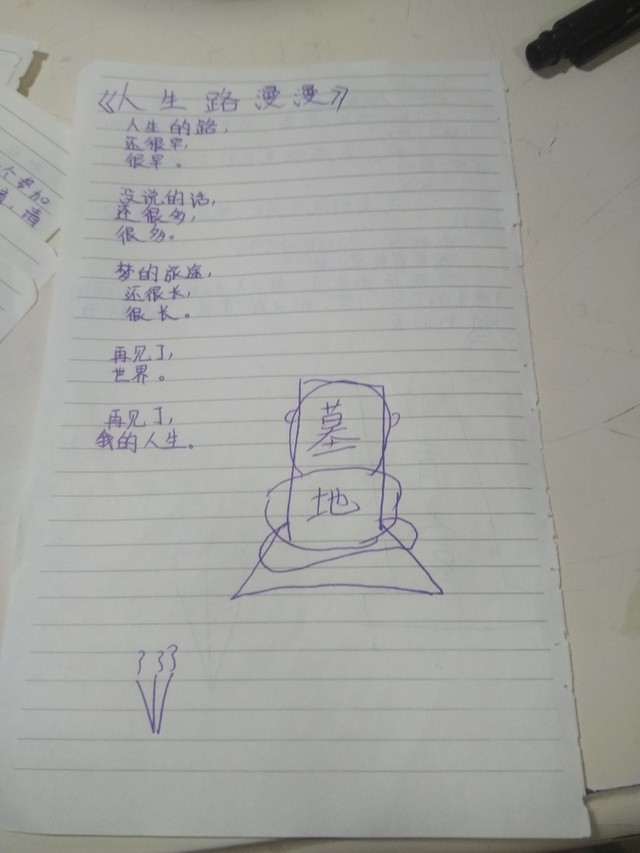 《人生路漫漫》
人生的路，
还很早，
很早。
没说的话，
还很多，
很多。
梦的旅途，
还很长，
很长。
再见了，
世界。
再见了，
我的人生。
墓
地